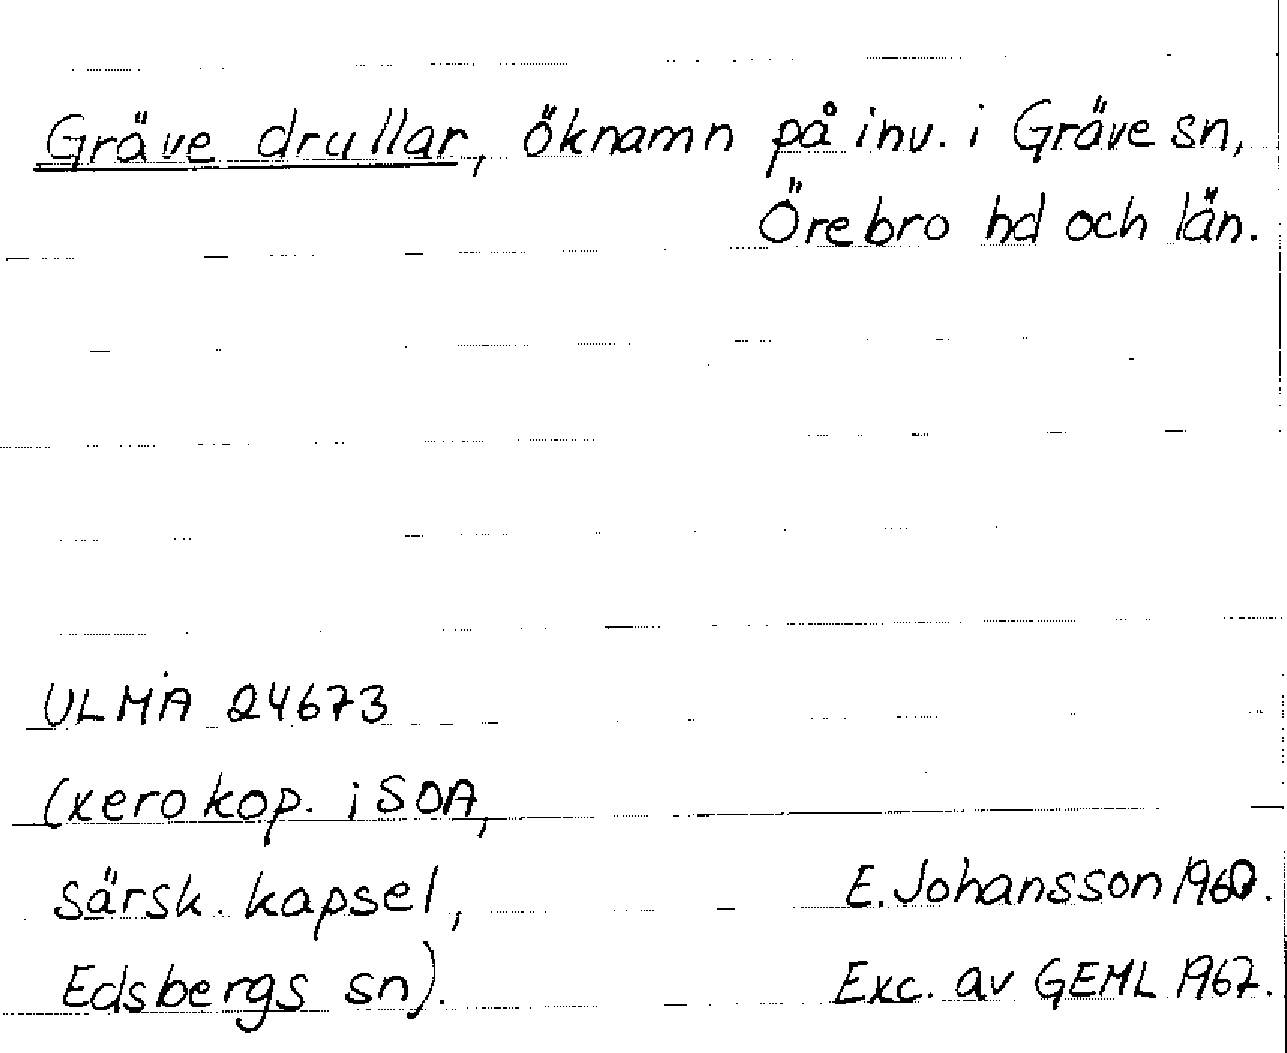 Gräve drullar, öknamn på inv. i Gräve sn,
Örebro hd och län.
ULMA 24673
(xerokop. i SOA,
särsk. kapsel,
Edsbergs sn).
E. Johansson 1960.
Exc. av GEML 1967.